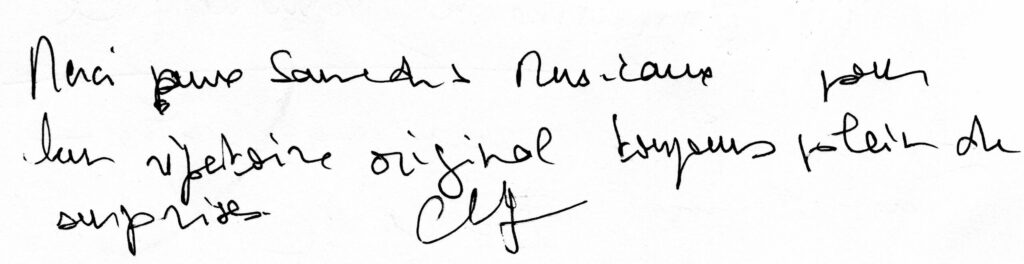 Merci aux Samedis Musicaux pour
leur répertoire original toujours plein de
surprises.